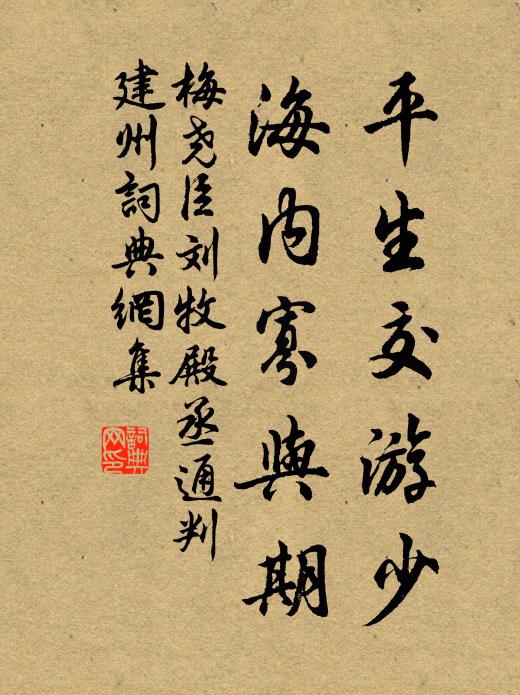 平生交游少
海内寡與期
梅尧臣刘牧殿丞通判
建州詞典網集
詞典網印